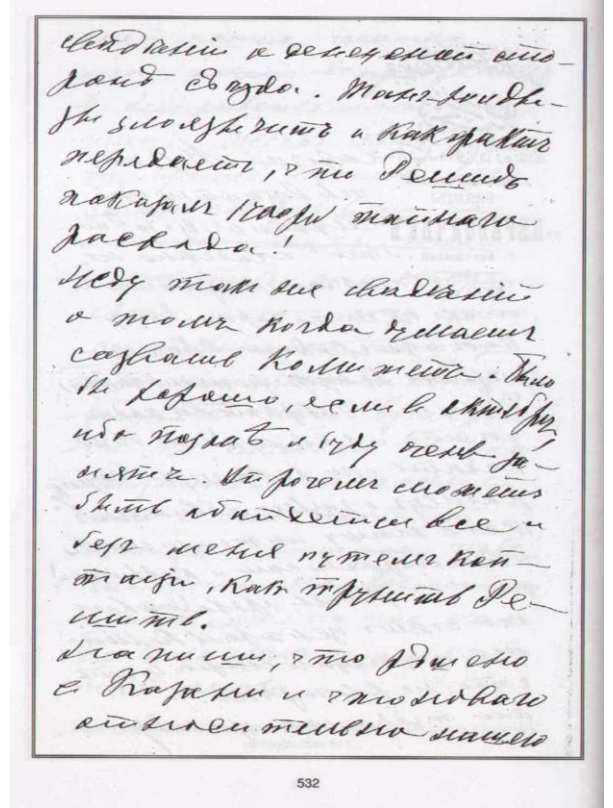 свѣдѣній о денежной сто-
ронѣ съѣзда. Тамъ
злоязычить и какъ фактъ
передаетъ, что Решидъ
показалъ тайнаго
расхода!
Жду также свѣдѣній
о томъ когда думаешь
созвать Комитетъ. Было
бы хорошо, если въ октябрѣ,
ибо позднѣе буду очень за-
нятъ. Впрочемъ можетъ
быть обойдется все и
безъ меня путемъ
какъ Ре-
шитъ.
Напиши, что рѣшено
о Казани и что новаго
относительно нашего
532